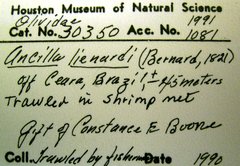 Houston Museum of Natural Science
Olividae 1991
Cat. No. 30350 Acc. No. 1081
Ancilla lienardi (Bernardi, 1821)
off Ceara, Brazil, ± 45 meters
Trawled in shrimp net
Gift of Constance E Boone
Coll. Trawled by fisherman Date 1990